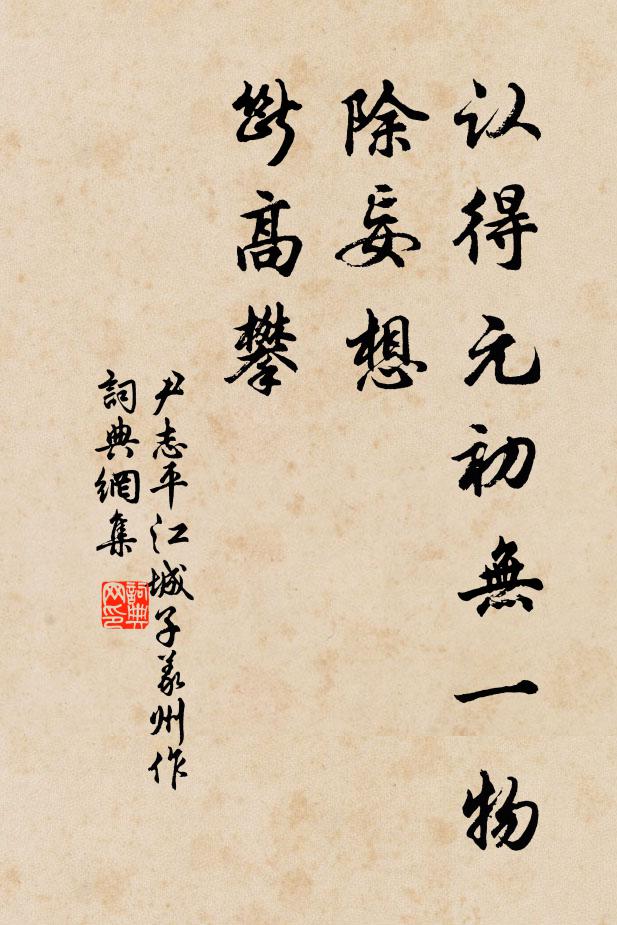 认得元初無一物
除妄想
斷高攀
尹志平江城子義州作
詞典網集
詞典网印